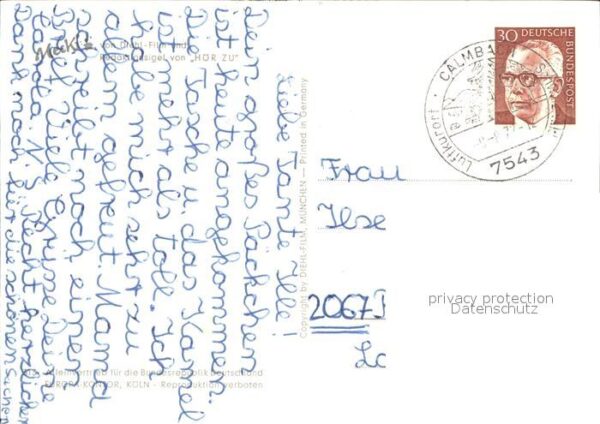 Liebe Tante Ille!
Dein großes Päckchen
ist heute angekommen.
Die Tasche u. das Kamel
ist mehr als toll. Ich
habe mich sehr zu
allem gefreut. Mama
schreibt noch einen
Brief. Viele Grüße Deine
N.S. Recht herzlichen
Dank noch für die schönen Sachen
Mecki
von Diehl-Film und
Redaktionsigel von "HÖR ZU"
Alleinvertrieb für die Bundesrepublik Deutschland
EUROPA-KONTOR, KÖLN - Reproduktion verboten
Copyright by DIEHL-FILM, MÜNCHEN — Printed in Germany
30 DEUTSCHE
BUNDESPOST
CALMBA
Luftkurort
7543
Frau
Ilse
2067
privacy protection
Datenschutz